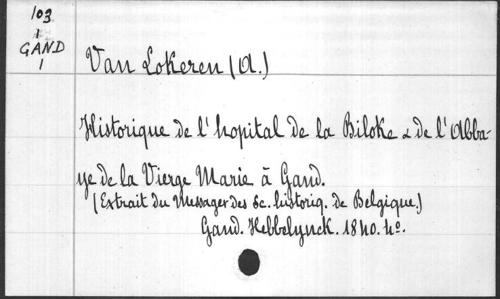 103
1
GAND
1
Van Lokeren (A.)
Historique de l'hopital de la Biloke & de l'Abba-
ye de la Vierge Marie à Gand.
(Extrait du Messager des Sc. historiq. de Belgique.)
Gand. Hebbelynck. 1840. 4º.